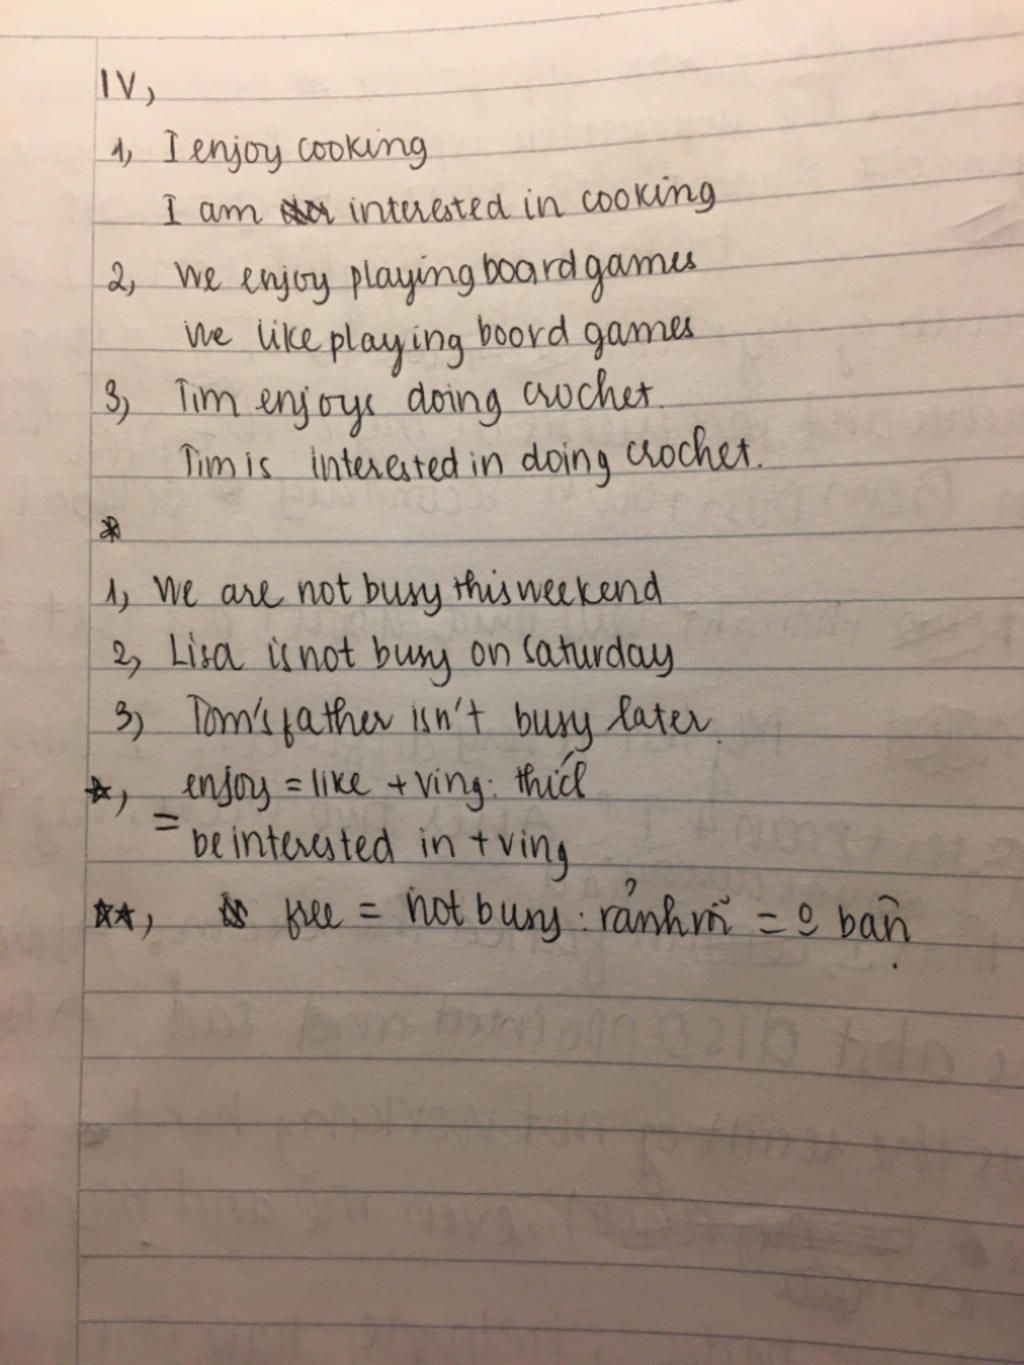 IV,
1, I enjoy cooking
I am interested in cooking
2, We enjoy playing board games
We like playing board games
3, Tim enjoys doing crochet.
Tim is interested in doing crochet.
*
1, We are not busy this weekend
2, Lisa is not busy on Saturday
3, Tom's father isn't busy later.
*, enjoy = like + ving: thích
= be interested in + ving
**, free = not busy: rảnh rỗi = o bận